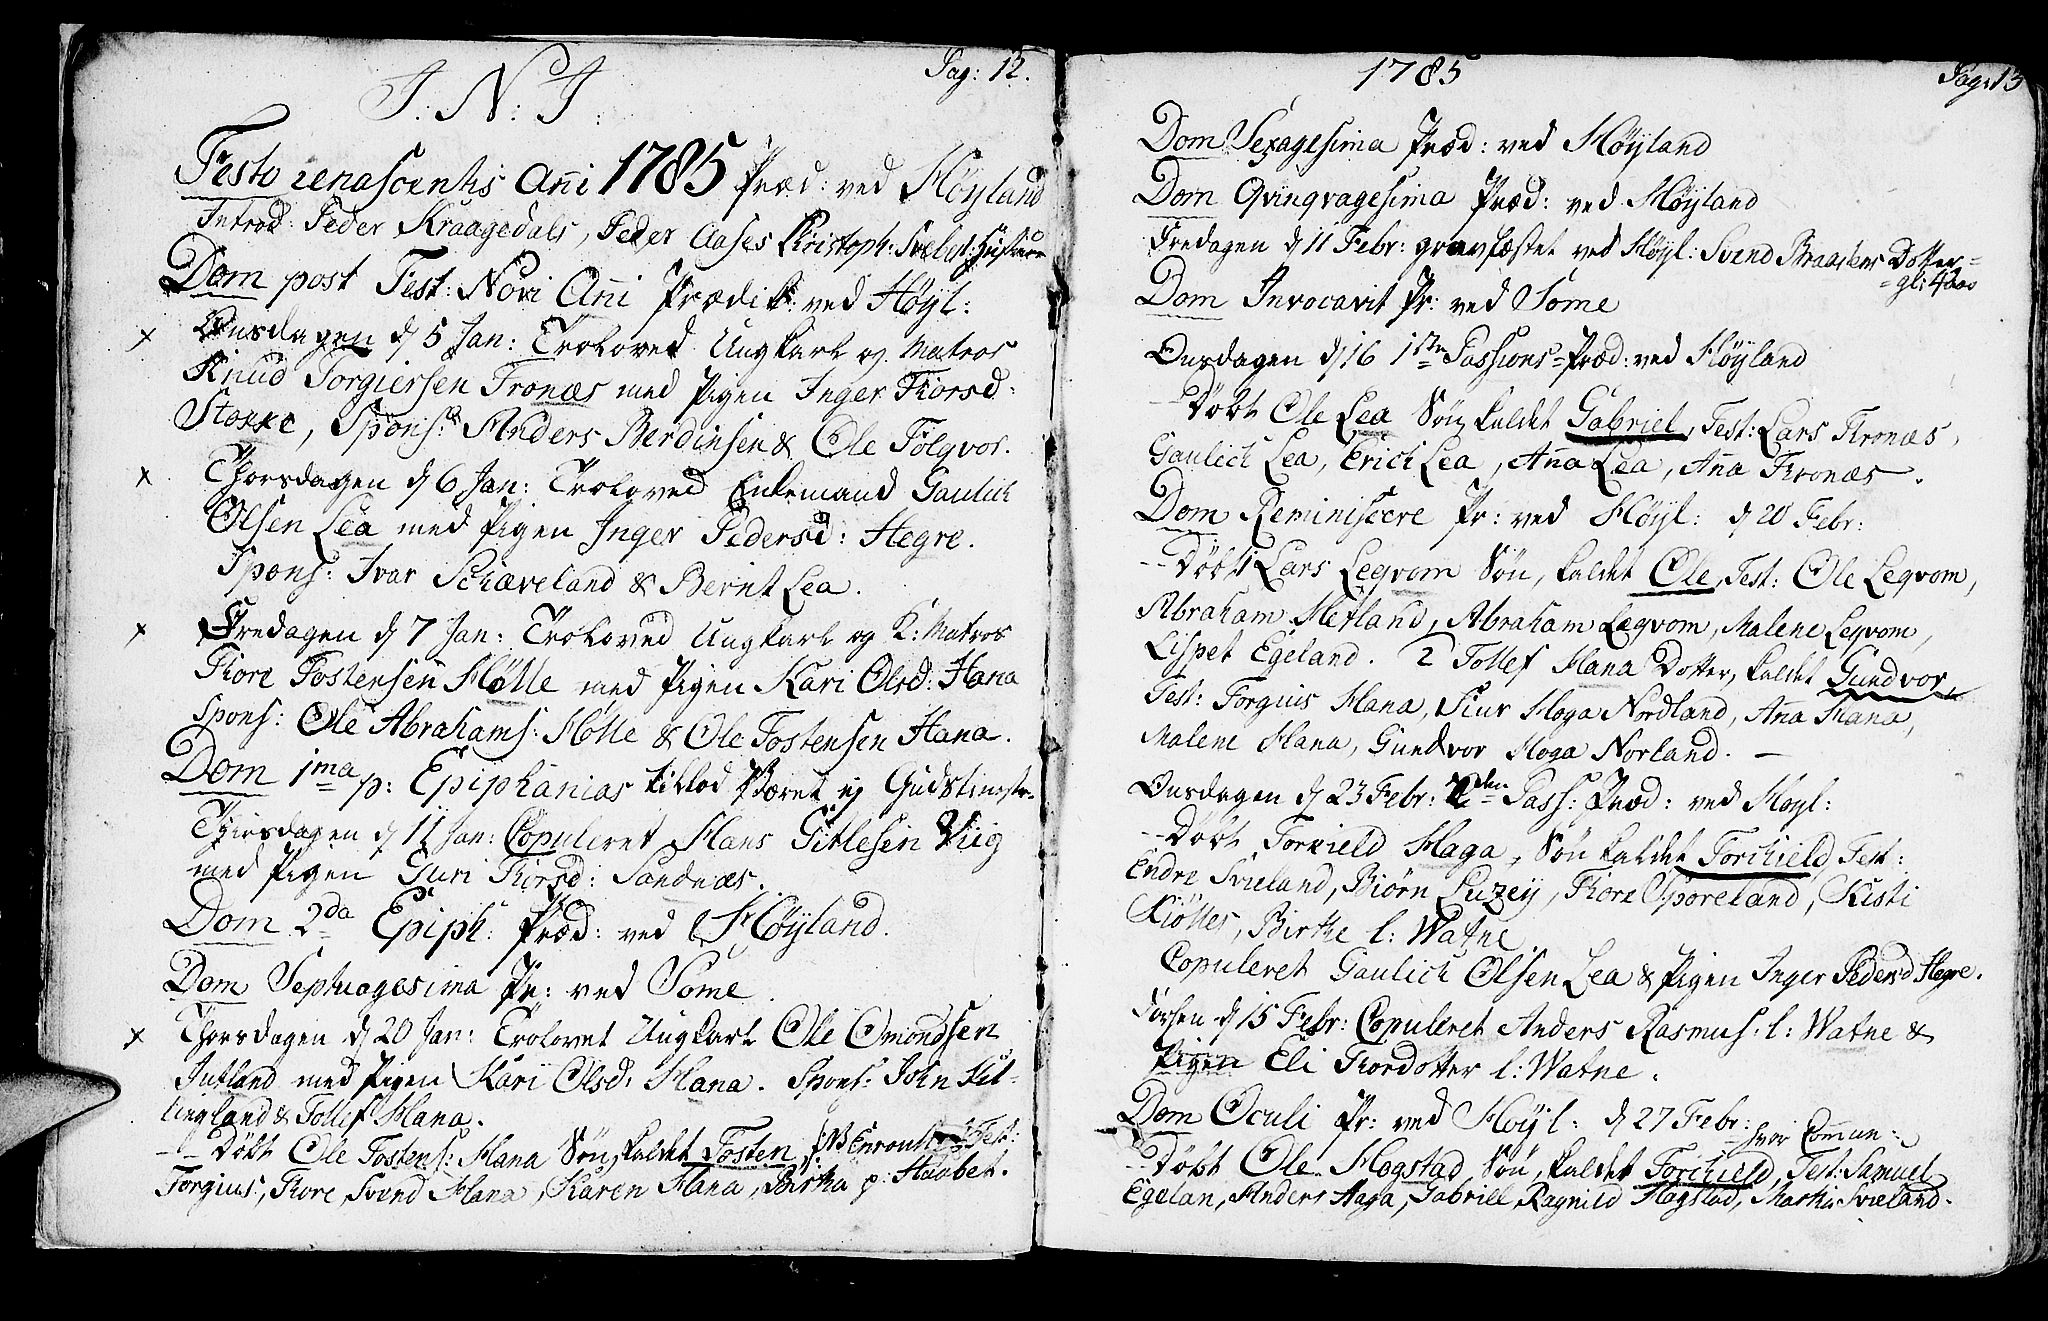 Pag: 12.
J. N. J.
Festo renascentis Añi 1785 Præd: ved Höyland
Introd: Peder Kraagedals, Peder Aases Christoph: Hustruer
Dom post Fest: Novi Añi Prædik: ved Höyl:
x Onsdagen d 5 Jan: Troloved Ungkarl og Matros
Knud Torgiersen Tronæs med Pigen Inger Thorsd:
Stokke, Spons: Anders Berdinsen & Ole Folqvor.
x Thorsdagen d 6 Jan: Troloved Enkemand Gaulich
Olsen Lea med Pigen Inger Pedersd: Hegre.
Spons: Ivar Schæveland & Bernt Lea.
x Fredagen d 7 Jan: Troloved Ungkarl og K: Matros
Thore Tostensen Hölle med Pigen Kari Olsd: Hana
Spons: Ole Abrahams: Hölle & Ole Tostensen Hana.
Dom 1ma p: Epiphanias tillod Været ej Gudstienste.
Tiirsdagen d 11 Jan: Copuleret Hans Gitlesen Viig
med Pigen Guri Thorsd: Sandnæs.
Dom 2da Epiph: Præd: ved Höyland.
Dom Septuagesima Pr: ved Some.
x Thorsdagen d 20 Jan: Trolovet Ungkarl Ole Omondsen
Jutland med Pigen Kari Olsd: Hana. Spons: John Kil-
lingland & Tollef Hana.
Döbt Ole Tostens: Hana Sön, kaldet Tosten, Test:
Torgius, Thore, Svend Hana, Karen Hana, Birtha p: Haabet.
1785
Pag: 13
Dom Sexagesima Præd: ved Höyland
Dom Qvinqvagesima Præd: ved Höyland
Fredagen d 11 Febr: gravfæstet ved Höyl: Svend Braastens Dotter=
=gl: 4 aar
Dom Invocavit Pr: ved Some
Onsdagen d 16 1ste Passions=Præd: ved Höyland
--Döbt Ole Lea Sön, kaldet Gabriel, Test: Lars Tronæs,
Gaulich Lea, Erich Lea, Aña Lea, Aña Tronæs.
Dom Reminiscere Pr: ved Höyl: d 20 Febr:
--Döbt 1 Lars Leqvom Sön, kaldet Ole, Test: Ole Leqvom,
Abraham Hetland, Abraham Leqvom, Malene Leqvom,
Lispet Egeland. 2 Tollef Hana Dotter, kaldet Gundvor,
Test: Torgius Hana, Siur Hoga Nordland, Aña Hana,
Malene Hana, Gundvor Hoga Norland. —
Onsdagen d 23 Febr: 2den Pass: Præd: ved Höyl:
--Döbt Torkield Haga, Sön kaldet Torchield, Test:
Endre Svieland, Biörn Luzey, Thore Sporeland, Kisti
Kiölles, Birthe l: Watne.
Copuleret Gaulich Olsen Lea & Pigen Inger Pedersd Hegre.
d 15 Febr: Copuleret Anders Rasmus: l: Watne &
Pigen Eli Thordotter l: Watne.
Dom Oculi Pr: ved Höyl: d 27 Febr:
hvor Com̃un:
--Döbt Ole Hogstad Sön, kaldet Torchield, Test: Samuel
Egelan, Anders Haga, Gabriel, Ragnild Hogstad, Martha Svieland.